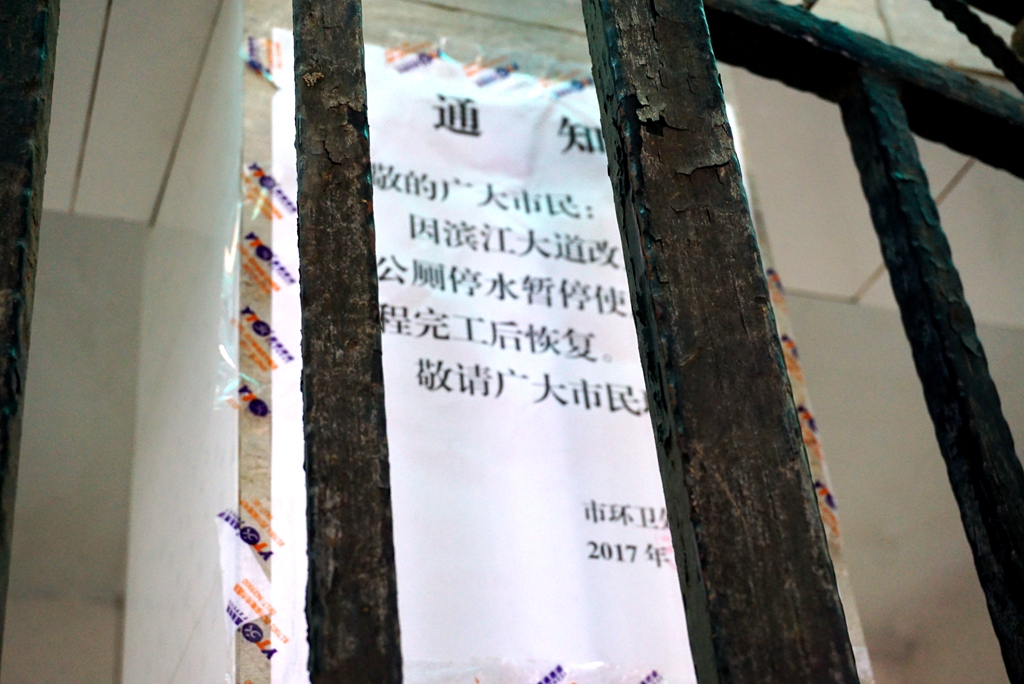 通 知
敬的广大市民：
因滨江大道改
公厕停水暂停使
程完工后恢复。
敬请广大市民
市环卫
2017 年